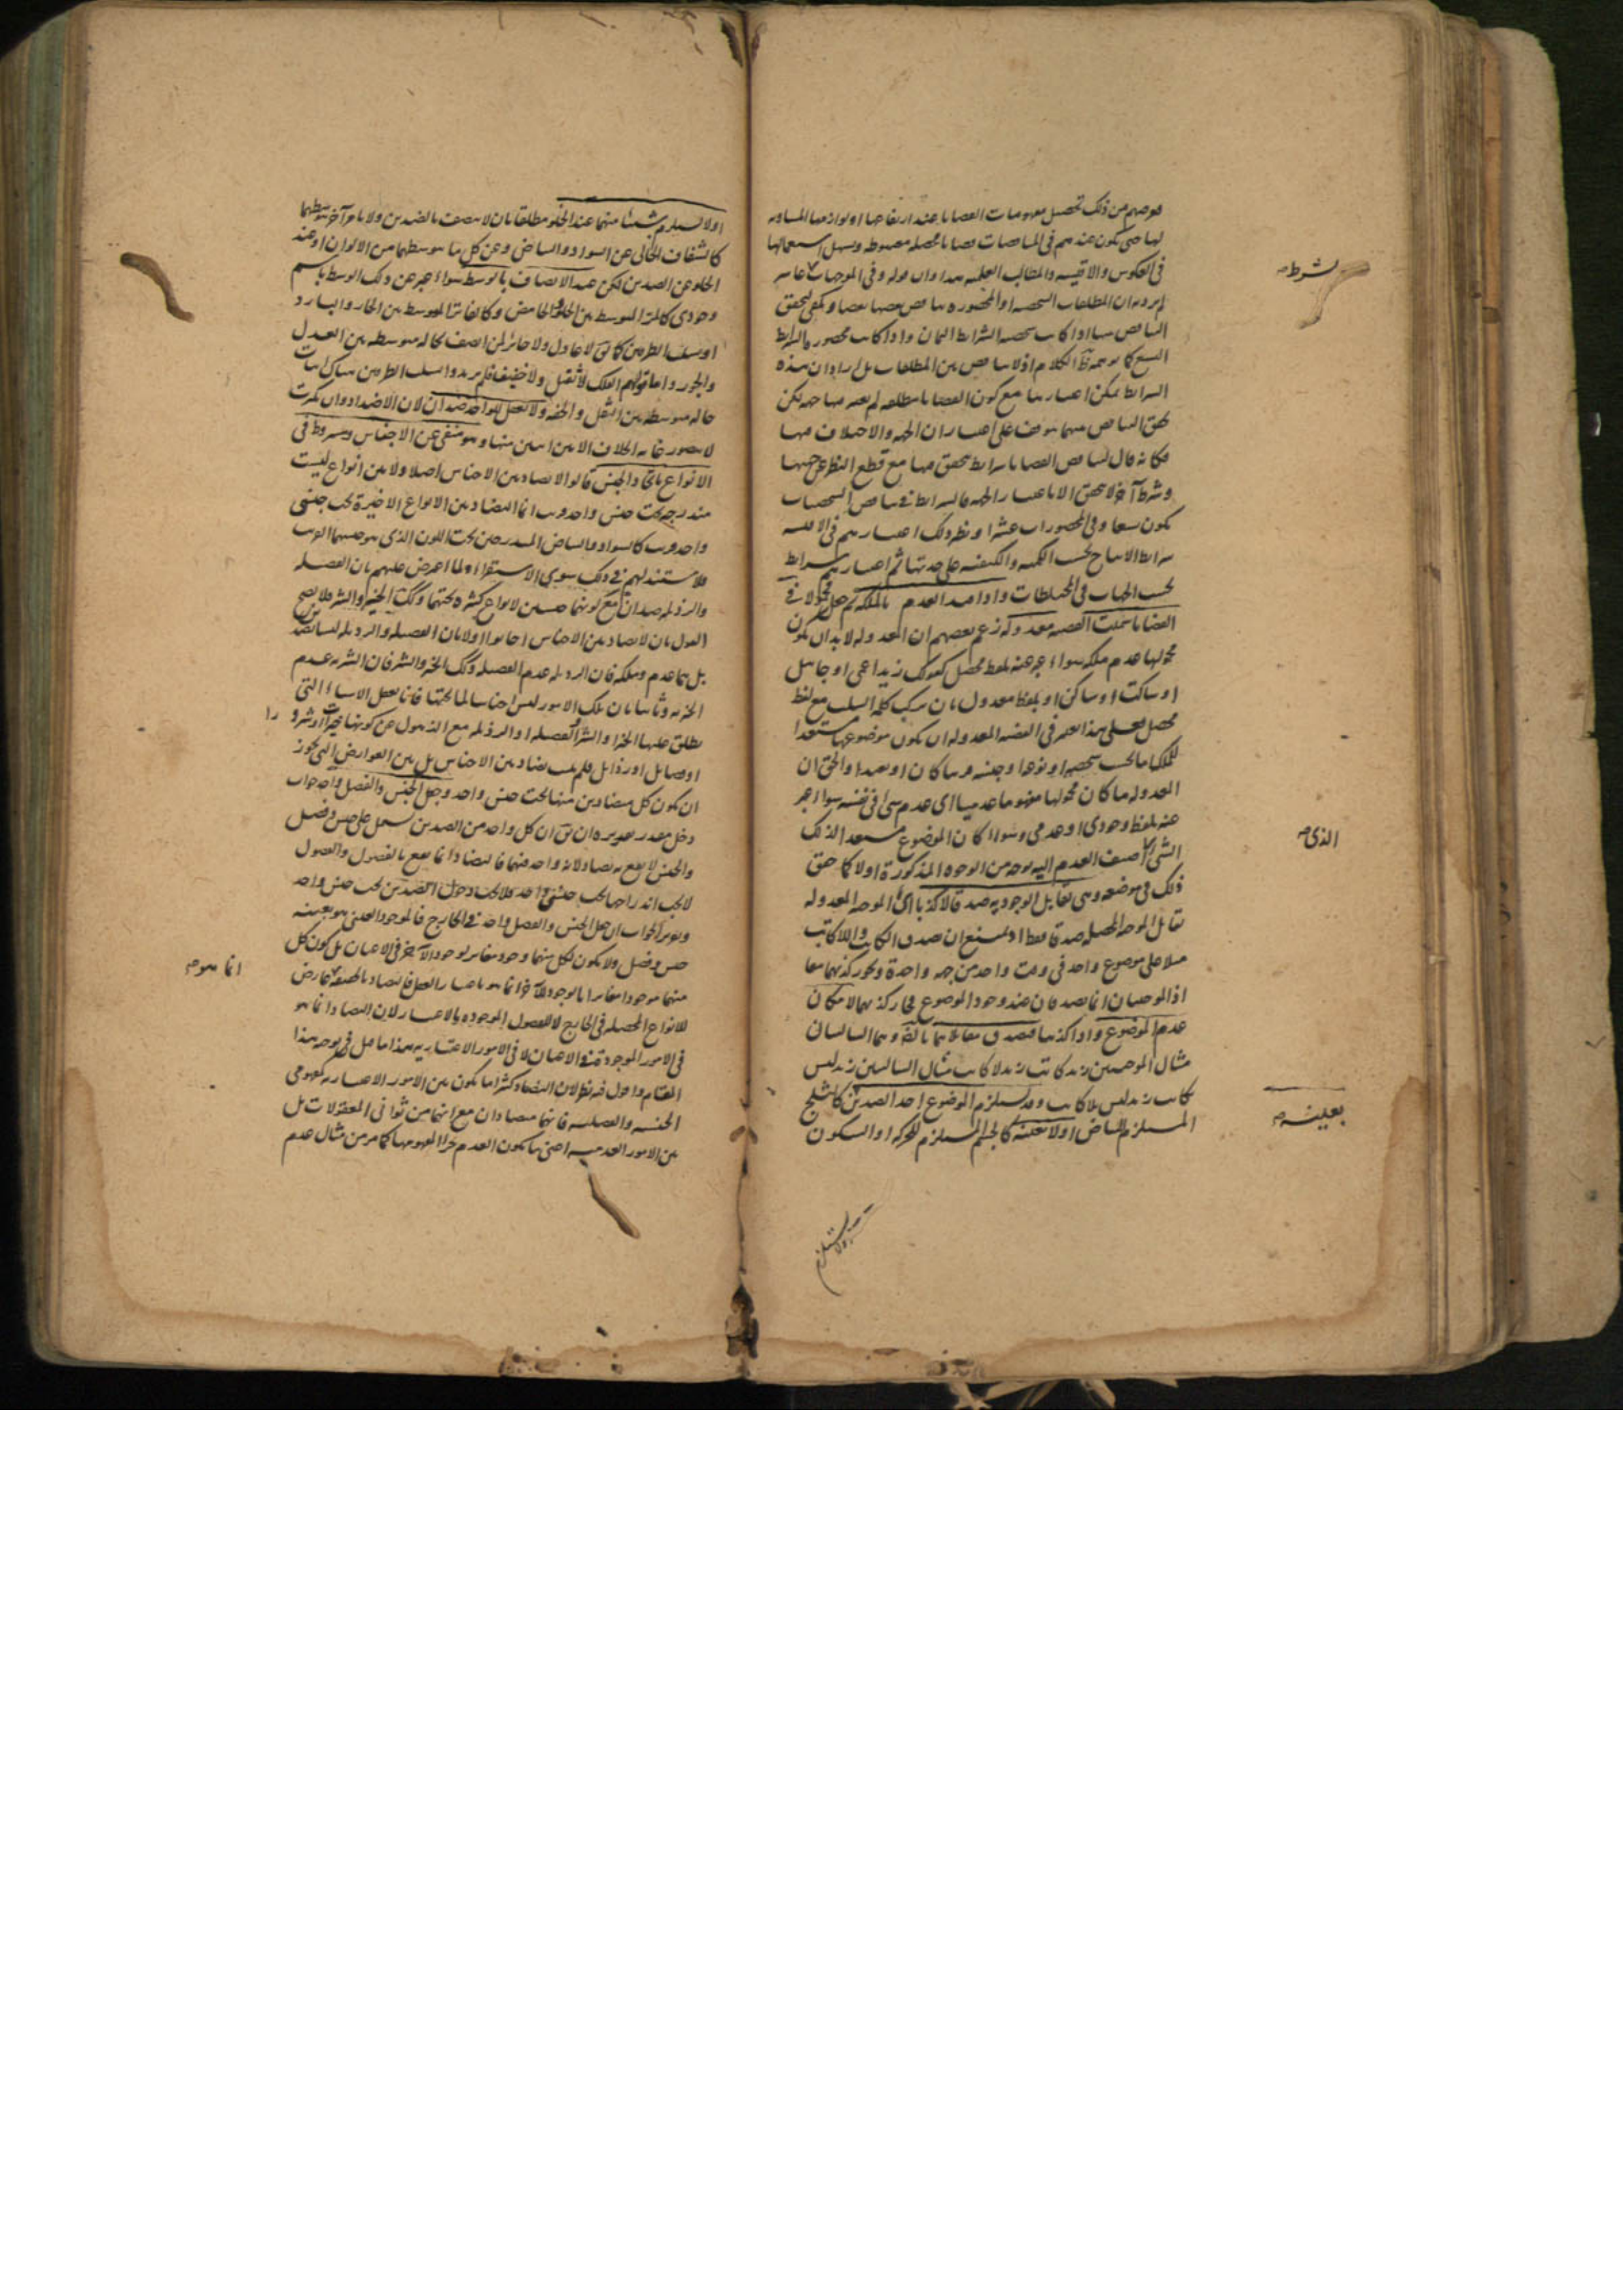 غرضهم من ذلك تحصيل مفهومات القضايا عند ارتفاعها او لوازمها المساوية
لها حتى يكون عندهم في المناقضات قضايا محصلة مضبوطة ويسهل استعمالها
في العكوس والاقيسة والمطالب العلمية هذا وان قوله وفي الموجهات
لم يرد به ان المطلقات الشخصية او المحصورة يناقض بعضها بعضا ويكفي لتحقق
التناقض بينها اذا كانت شخصية الشرايط الثمان واذا كانت محصورة الشرايط
التسع كما يوهمه الكلام اذ لا تناقض بين المطلقات بل اراد ان هذه
الشرايط يمكن اعتبارها مع كون القضايا مطلقة لم يعتبر فيها جهة لكن
تحقق التناقض فيها موقوف على اعتبار ان الجهة والاختلاف فيها
فكانه قال لتناقض القضايا شرايط يتحقق فيها مع قطع النظر عن جهتها
وشرط آخر لا يتحقق الا باعتبار الجهة فالشرايط في تناقض الشخصيات
يكون تسعا وفي المحصورات عشرا ونظير ذلك اعتبارهم في الاقيسة
شرايط الانتاج بحسب الكمية والكيفية على حدتها ثم اعتبارهم شرايط
بحسب الجهات في المختلطات واذا قيد العدم بالملكة في
القضايا سميت القضية معدولة زعم بعضهم ان المعدولة لا بد ان يكون
محمولها عدم ملكة سواء عبر عنه بلفظ محصل كقولك زيد اعمى او جاهل
او ساكت او ساكن او بلفظ معدول بان يركب كلمة السلب مع لفظ
محصل فعلى هذا يعتبر في القضية المعدولة ان يكون موضوعها مستعدا
للملكة اما بحسب شخصه او نوعه او جنسه قريبا كان او بعيدا والحق ان
المعدولة ما كان محمولها مفهوما عدميا اي عدم شيء في نفسه سواء عبر
عنه بلفظ وجودي او عدمي وسواء كان الموضوع مستعدا لذلك
الشيء اضيف العدم اليه بوجه من الوجوه المذكورة او لا كما حقق
ذلك في موضعه وهي تقابل الوجودية صدقا لا كذبا اي الموجبة المعدولة
تقابل الموجبة المحصلة صدقا فقط اذ يمتنع ان يصدق الكاتب واللاكاتب
مثلا على موضوع واحد في وقت واحد من جهة واحدة ويجوز كذبهما معا
اذ الموجبتان انما تصدقان عند وجود الموضوع فجاز كذبهما لامكان
عدم الموضوع واذا كذبتا فيصدق مقابلاهما بالضرورة وهما السالبتان
مثال الموجبتين زيد كاتب زيد لا كاتب مثال السالبتين زيد ليس
كاتب زيد ليس بلا كاتب وقد يستلزم الموضوع احد الضدين كالثلج
المستلزم للبياض او لا بعينه كالجسم المستلزم للحركة او السكون
لشرط
الذي
بعينه
او لا يستلزم شيئا منهما عند الخلو مطلقا بان لا يتصف بالضدين ولا بامر آخر يتوسطهما
كالشفاف الخالي عن السواد والبياض وعن كل ما يتوسطهما من الالوان او عند
الخلو عن الضدين لكن عند الاتصاف بالوسط سواء عبر عن ذلك الوسط باسم
وجودي كالمز المتوسط بين الحلو والحامض وكالفاتر المتوسط بين الحار والبارد
او بسلب الطرفين كما يق لا عادل ولا جائر لمن اتصف بحالة متوسطة بين العدل
والجور واما قولهم الفلك لا ثقيل ولا خفيف فلم يريدوا بسلب الطرفين هناك اثبات
حالة متوسطة بين الثقل والخفة ولا يعقل للواحد ضدان لان الاضداد وان كثرت
لا يتصور غاية الخلاف الا بين اثنين منها وهو منفي عن الاجناس ومشروط في
الانواع باتحاد الجنس قالوا لا تضاد بين الاجناس اصلا ولا بين انواع ليست
مندرجة تحت جنس واحد قريب انما التضاد بين الانواع الاخيرة تحت جنس
واحد قريب كالسواد والبياض المندرجين تحت اللون الذي هو جنسهما القريب
ولا مستند لهم في ذلك سوى الاستقراء ولما اعترض عليهم بان الفضيلة
والرذيلة ضدان مع كونهما جنسين لانواع كثيرة تحتهما وكذلك الخير والشر فلا يصح
القول بان لا تضاد بين الاجناس اجابوا اولا بان الفضيلة والرذيلة ليستا ضدين
بل هما عدم وملكة فان الرذيلة عدم الفضيلة وكذلك الخير والشر فان الشرية عدم
الخيرية وثانيا بان تلك الامور ليس اجناسا لما تحتها فانا نعقل الاشياء التي
يطلق عليها الخير او الشر او الفضيلة او الرذيلة مع الذهول عن كونها خيرات او شرورا
او فضائل او رذايل فلم يثبت تضاد بين الاجناس بل بين العوارض التي يجوز
ان يكون كل متضادين منها تحت جنس واحد وجعل الجنس والفصل واحد جواب
دخل مقدر تقريره ان يق ان كل واحد من الضدين يشتمل على جنس وفصل
والجنس لا يقع به تضاد لانه واحد فيهما فالتضاد انما يقع بالفصول والفصول
لا يجب اندراجها تحت جنس واحد فلا يجب دخول الضدين تحت جنس واحد
وتقرير الجواب ان جعل الجنس والفصل واحد في الخارج فالموجود العيني هو بعينه
جنس وفصل ولا يكون لكل منهما وجود مغاير لوجود الآخر في الاعيان بل كون كل
منهما موجودا مغايرا لوجود الآخر انما هو باعتبار العقل فالتضاد بالحقيقة عارض
للانواع المحصلة في الخارج لا للفصول الموجودة بالاعتبار لان التضاد انما هو
في الامور الموجودة في الاعيان لا في الامور الاعتبارية هذا ما قيل في توجيه هذا
المقام واقول فيه نظر لان التضاد كثيرا ما يكون بين الامور الاعتبارية كمفهومي
الجنسية والفصلية فانهما متضادان مع انهما من ثواني المعقولات بل
بين الامور العدمية اعني ما يكون العدم جزءا لمفهومها كما مر من مثال عدم
انما هو